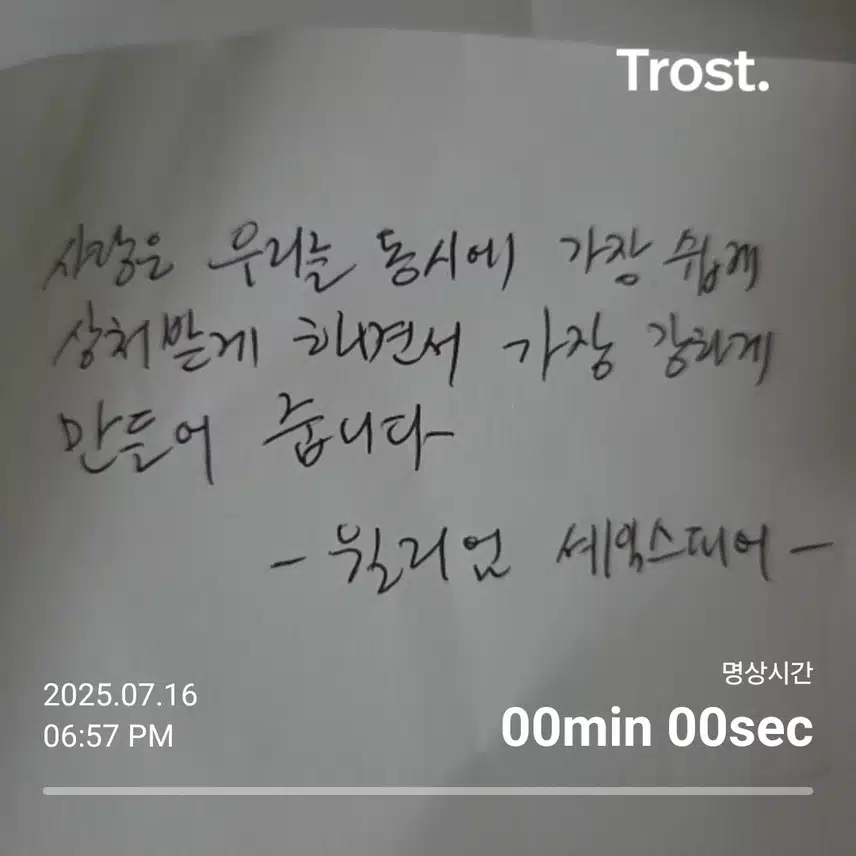 Trost.
사랑은 우리를 동시에 가장 쉽게
상처받게 하면서 가장 강하게
만들어 줍니다
- 윌리엄 셰익스피어 -
명상시간
2025.07.16
06:57 PM
00min 00sec